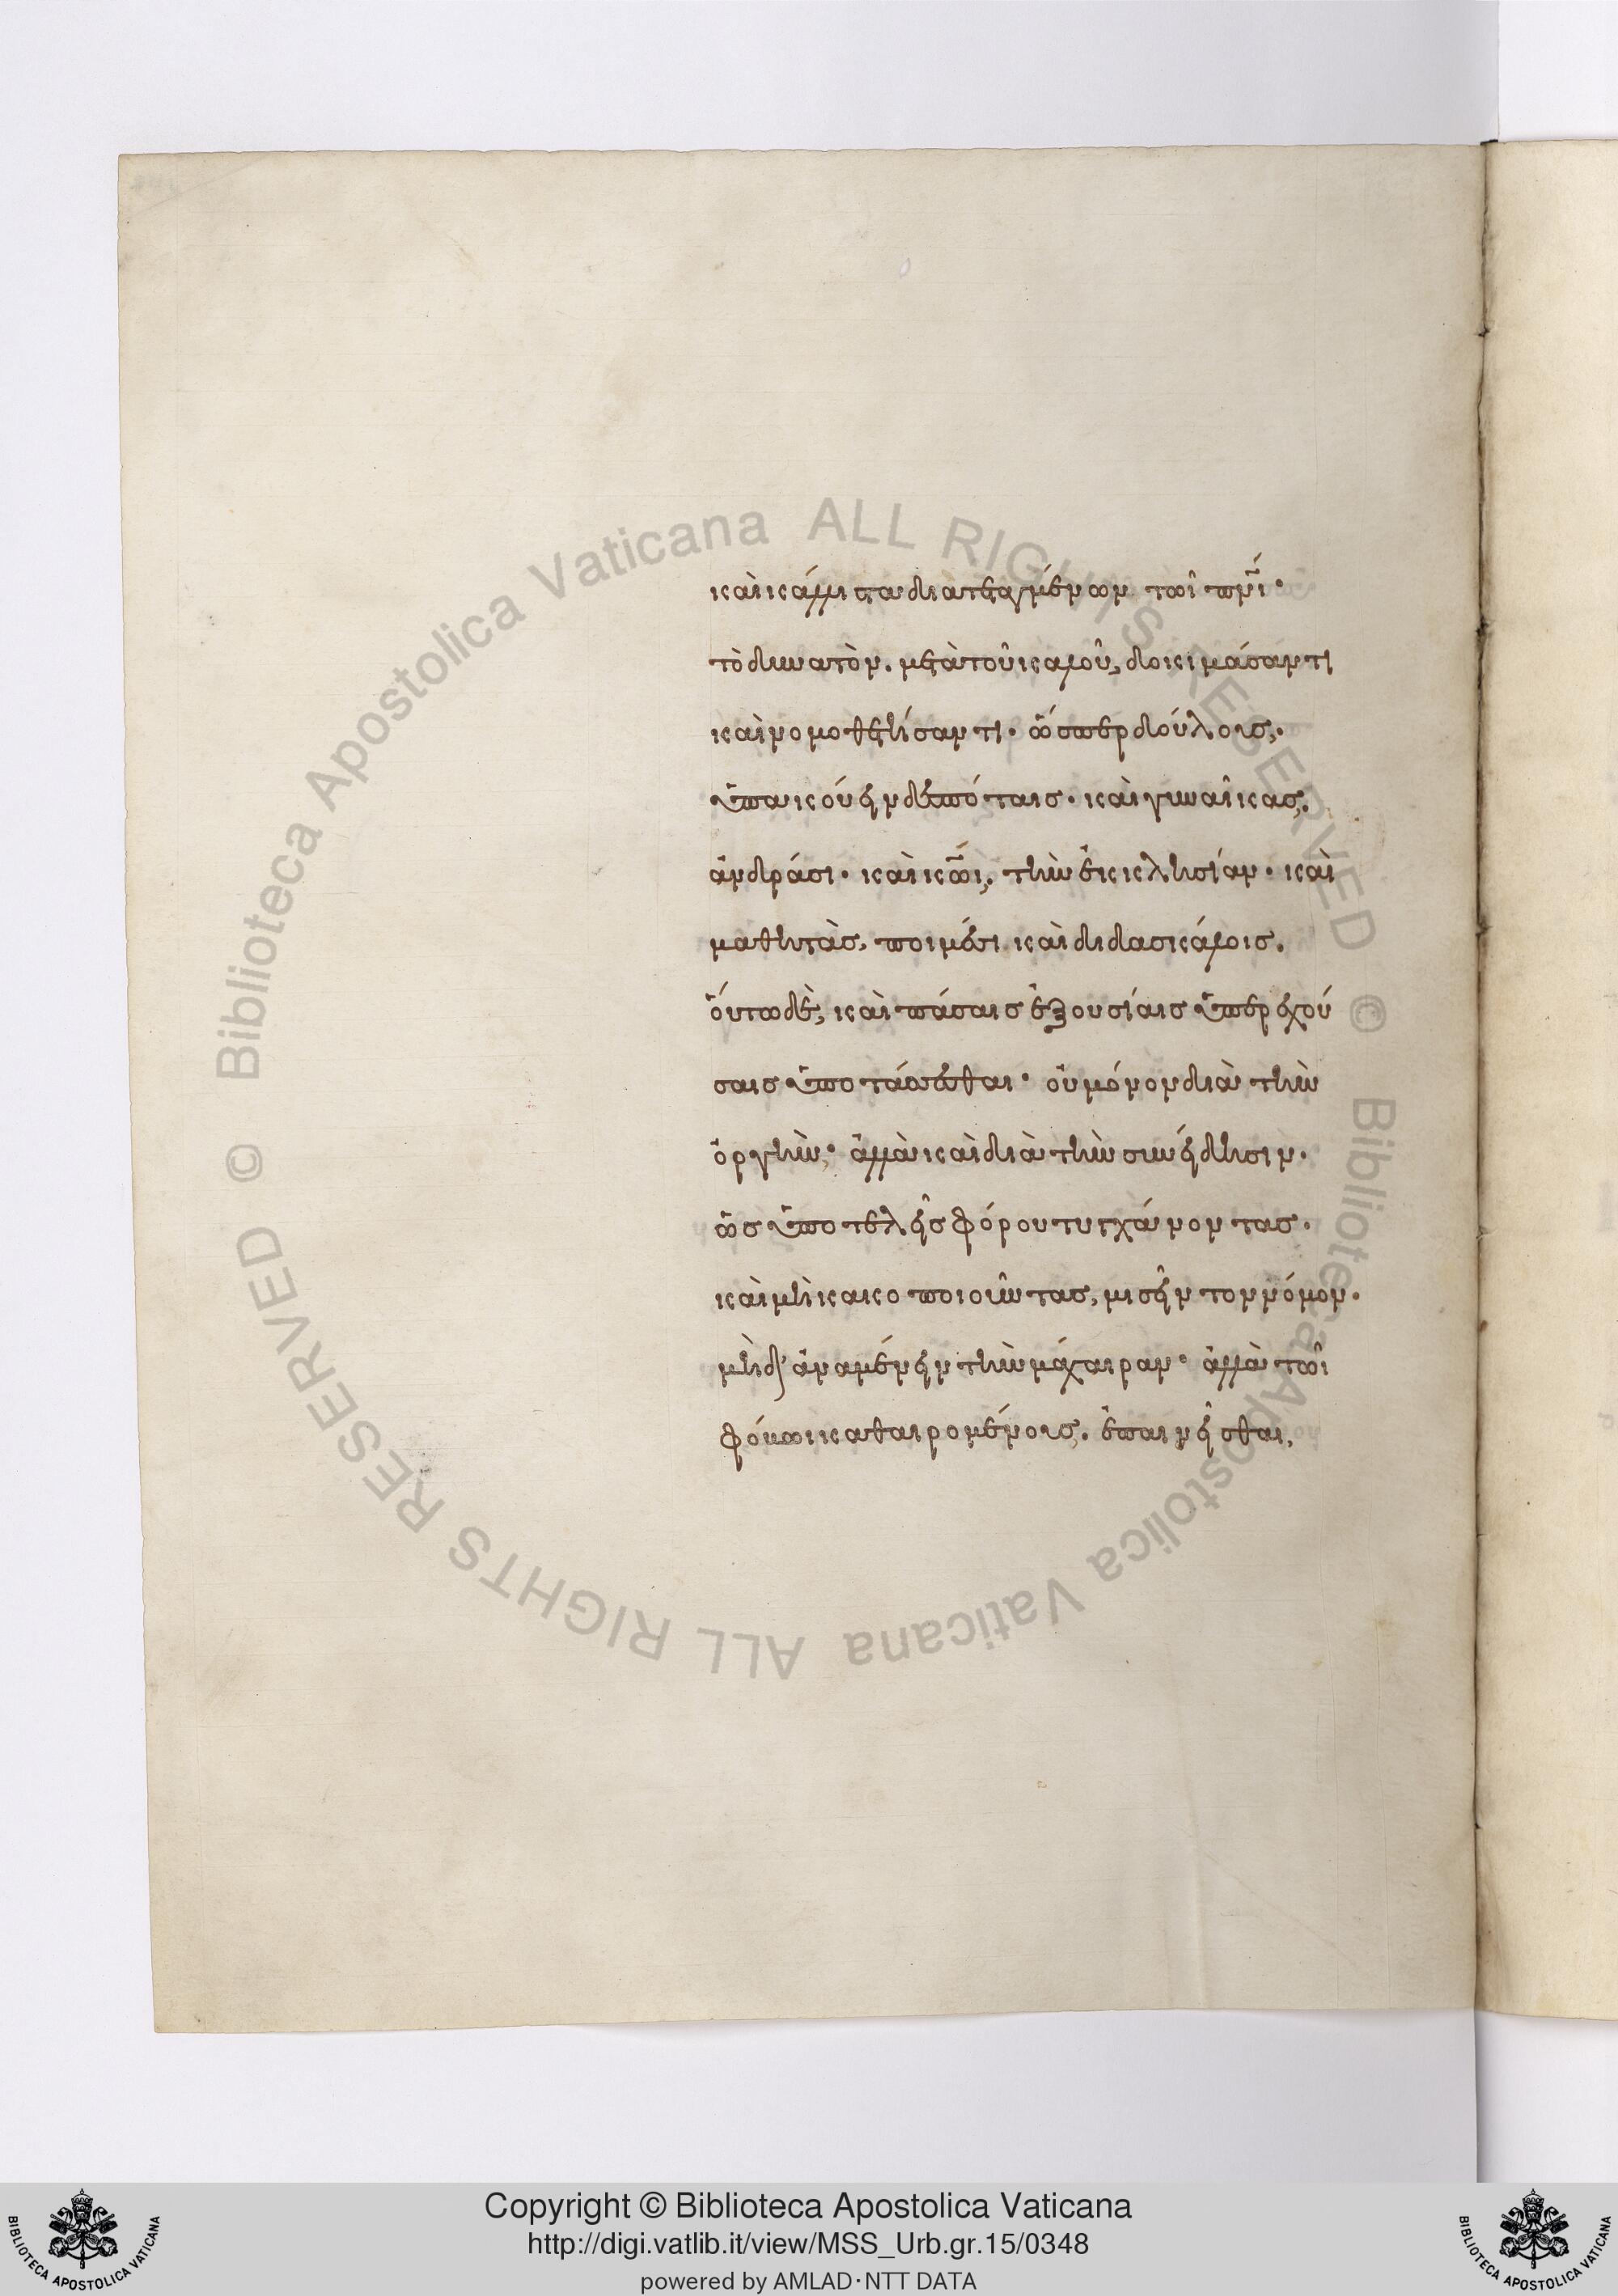 καὶ κάλλιστα διατεταγμένων τῶι πνι·
τὸ δυνατὸν. μετὰ τοῦ καλοῦ, δοκιμάσαντι
καὶ νομοθετήσαντι· ὥσπερ δούλοις,·
ὑπακούειν δεσπόταις· καὶ γυναῖκας,
ἀνδράσι· καὶ κωι, τὴν ἐκκλησίαν· καὶ
μαθητὰς, ποιμέσι καὶ διδασκάλοις.
οὕτω δὲ, καὶ πάσαις ἐξουσίαις ὑπερεχού
σαις ὑποτάσσεσθαι· οὐ μόνον διὰ τὴν
ὀργὴν· ἀλλὰ καὶ διὰ τὴν συνείδησιν·
ὡς ὑποτελεῖς φόρου τυγχάνοντας·
καὶ μὴ κακοποιοῦντας, μισεῖν τον νόμον·
μὴ δ' ἀναμένειν τὴν μάχαιραν· ἀλλὰ τῶι
φόβωι καθαιρομένοις, ἐπαινεῖσθαι,
© Biblioteca Apostolica Vaticana ALL RIGHTS RESERVED
© Biblioteca Apostolica Vaticana ALL RIGHTS RESERVED
Copyright © Biblioteca Apostolica Vaticana
http://digi.vatlib.it/view/MSS_Urb.gr.15/0348
powered by AMLAD·NTT DATA
BIBLIOTECA APOSTOLICA VATICANA
BIBLIOTECA APOSTOLICA VATICANA